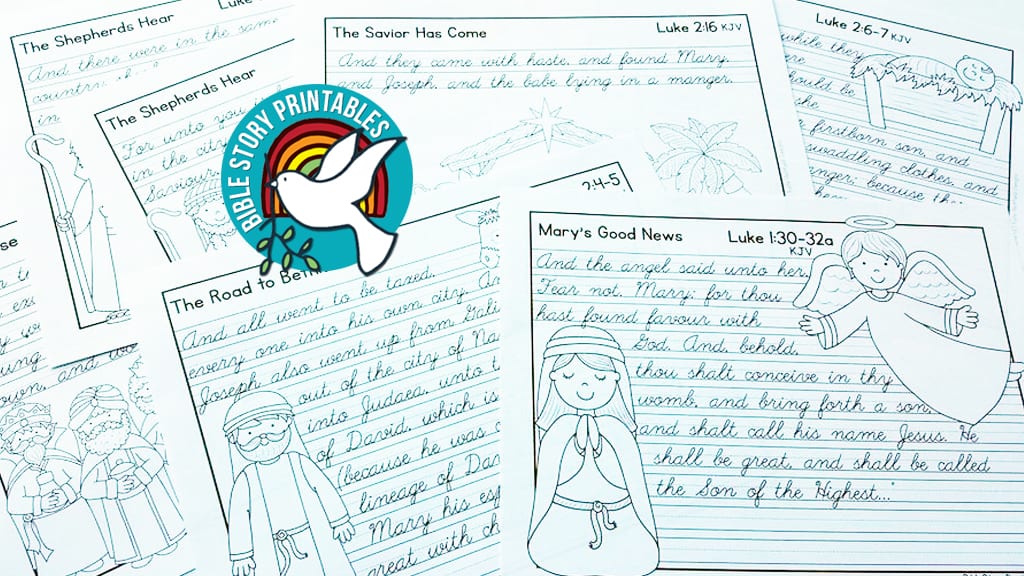 The Shepherds Hear
Luke
And there were in the same
country
in
The Shepherds Hear
For unto you
in the city
Saviour
The Savior Has Come
Luke 2:16 KJV
And they came with haste, and found Mary,
and Joseph, and the babe lying in a manger.
Luke 2:6-7 KJV
while they
should be
she
firstborn son, and
swaddling clothes, and
because
BIBLE STORY PRINTABLES
The Road to
2:4-5,
And all went to be taxed,
every one into his own city.
Joseph also went up from
out of the city of
into Judaea, unto
of David, which is
(because he was
lineage of
Mary his
great with
and
Mary's Good News
Luke 1:30-32a
KJV
And the angel said unto her,
Fear not, Mary: for thou
hast found favour with
God. And, behold,
thou shalt conceive in thy
womb, and bring forth a son,
and shalt call his name Jesus. He
shall be great, and shall be called
the Son of the Highest..."